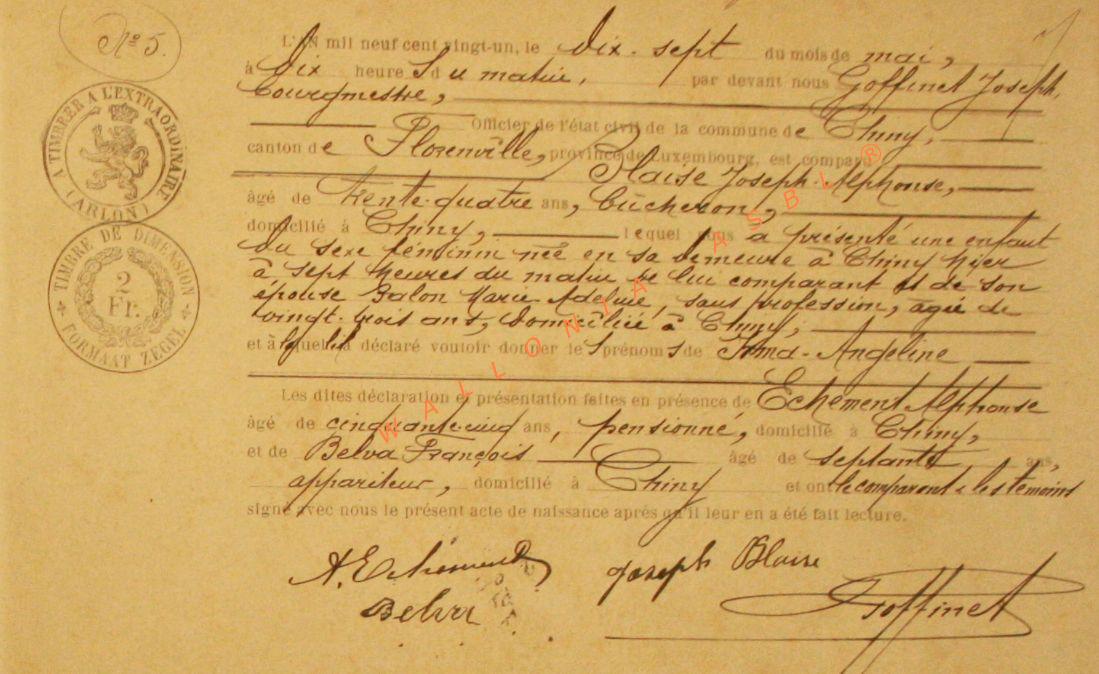 No 5.
A TIMBRER A L'EXTRAORDINAIRE
(ARLON)
TIMBRE DE DIMENSION
2
Fr.
FORMAAT ZEGEL
L'AN mil neuf cent vingt-un, le Dix-sept du mois de mai,
à Dix heures du matin, par devant nous Goffinet Joseph,
Bourgmestre,
Officier de l'état civil de la commune de Chiny,
canton de Florenville, province de Luxembourg, est comparu
Blaise Joseph-Alphonse,
âgé de trente-quatre ans, bûcheron,
domicilié à Chiny, lequel nous a présenté une enfant
du sexe féminin née en sa demeure à Chiny hier
à sept heures du matin de lui comparant et de son
épouse Galon Marie Adeline, sans profession, agée de
vingt-trois ans, domiciliée à Chiny,
et à laquelle il a déclaré vouloir donner les prénoms de Irma-Angeline
Les dites déclaration et présentation faites en présence de Echement Alphonse
âgé de cinquante-cinq ans, pensionné, domicilié à Chiny,
et de Belva François âgé de septante ans,
appariteur, domicilié à Chiny et ont le comparant & les témoins
signé avec nous le présent acte de naissance après qu'il leur en a été fait lecture.
A. Echement Joseph Blaise
Belva Goffinet
WALLONIA ASBL ®